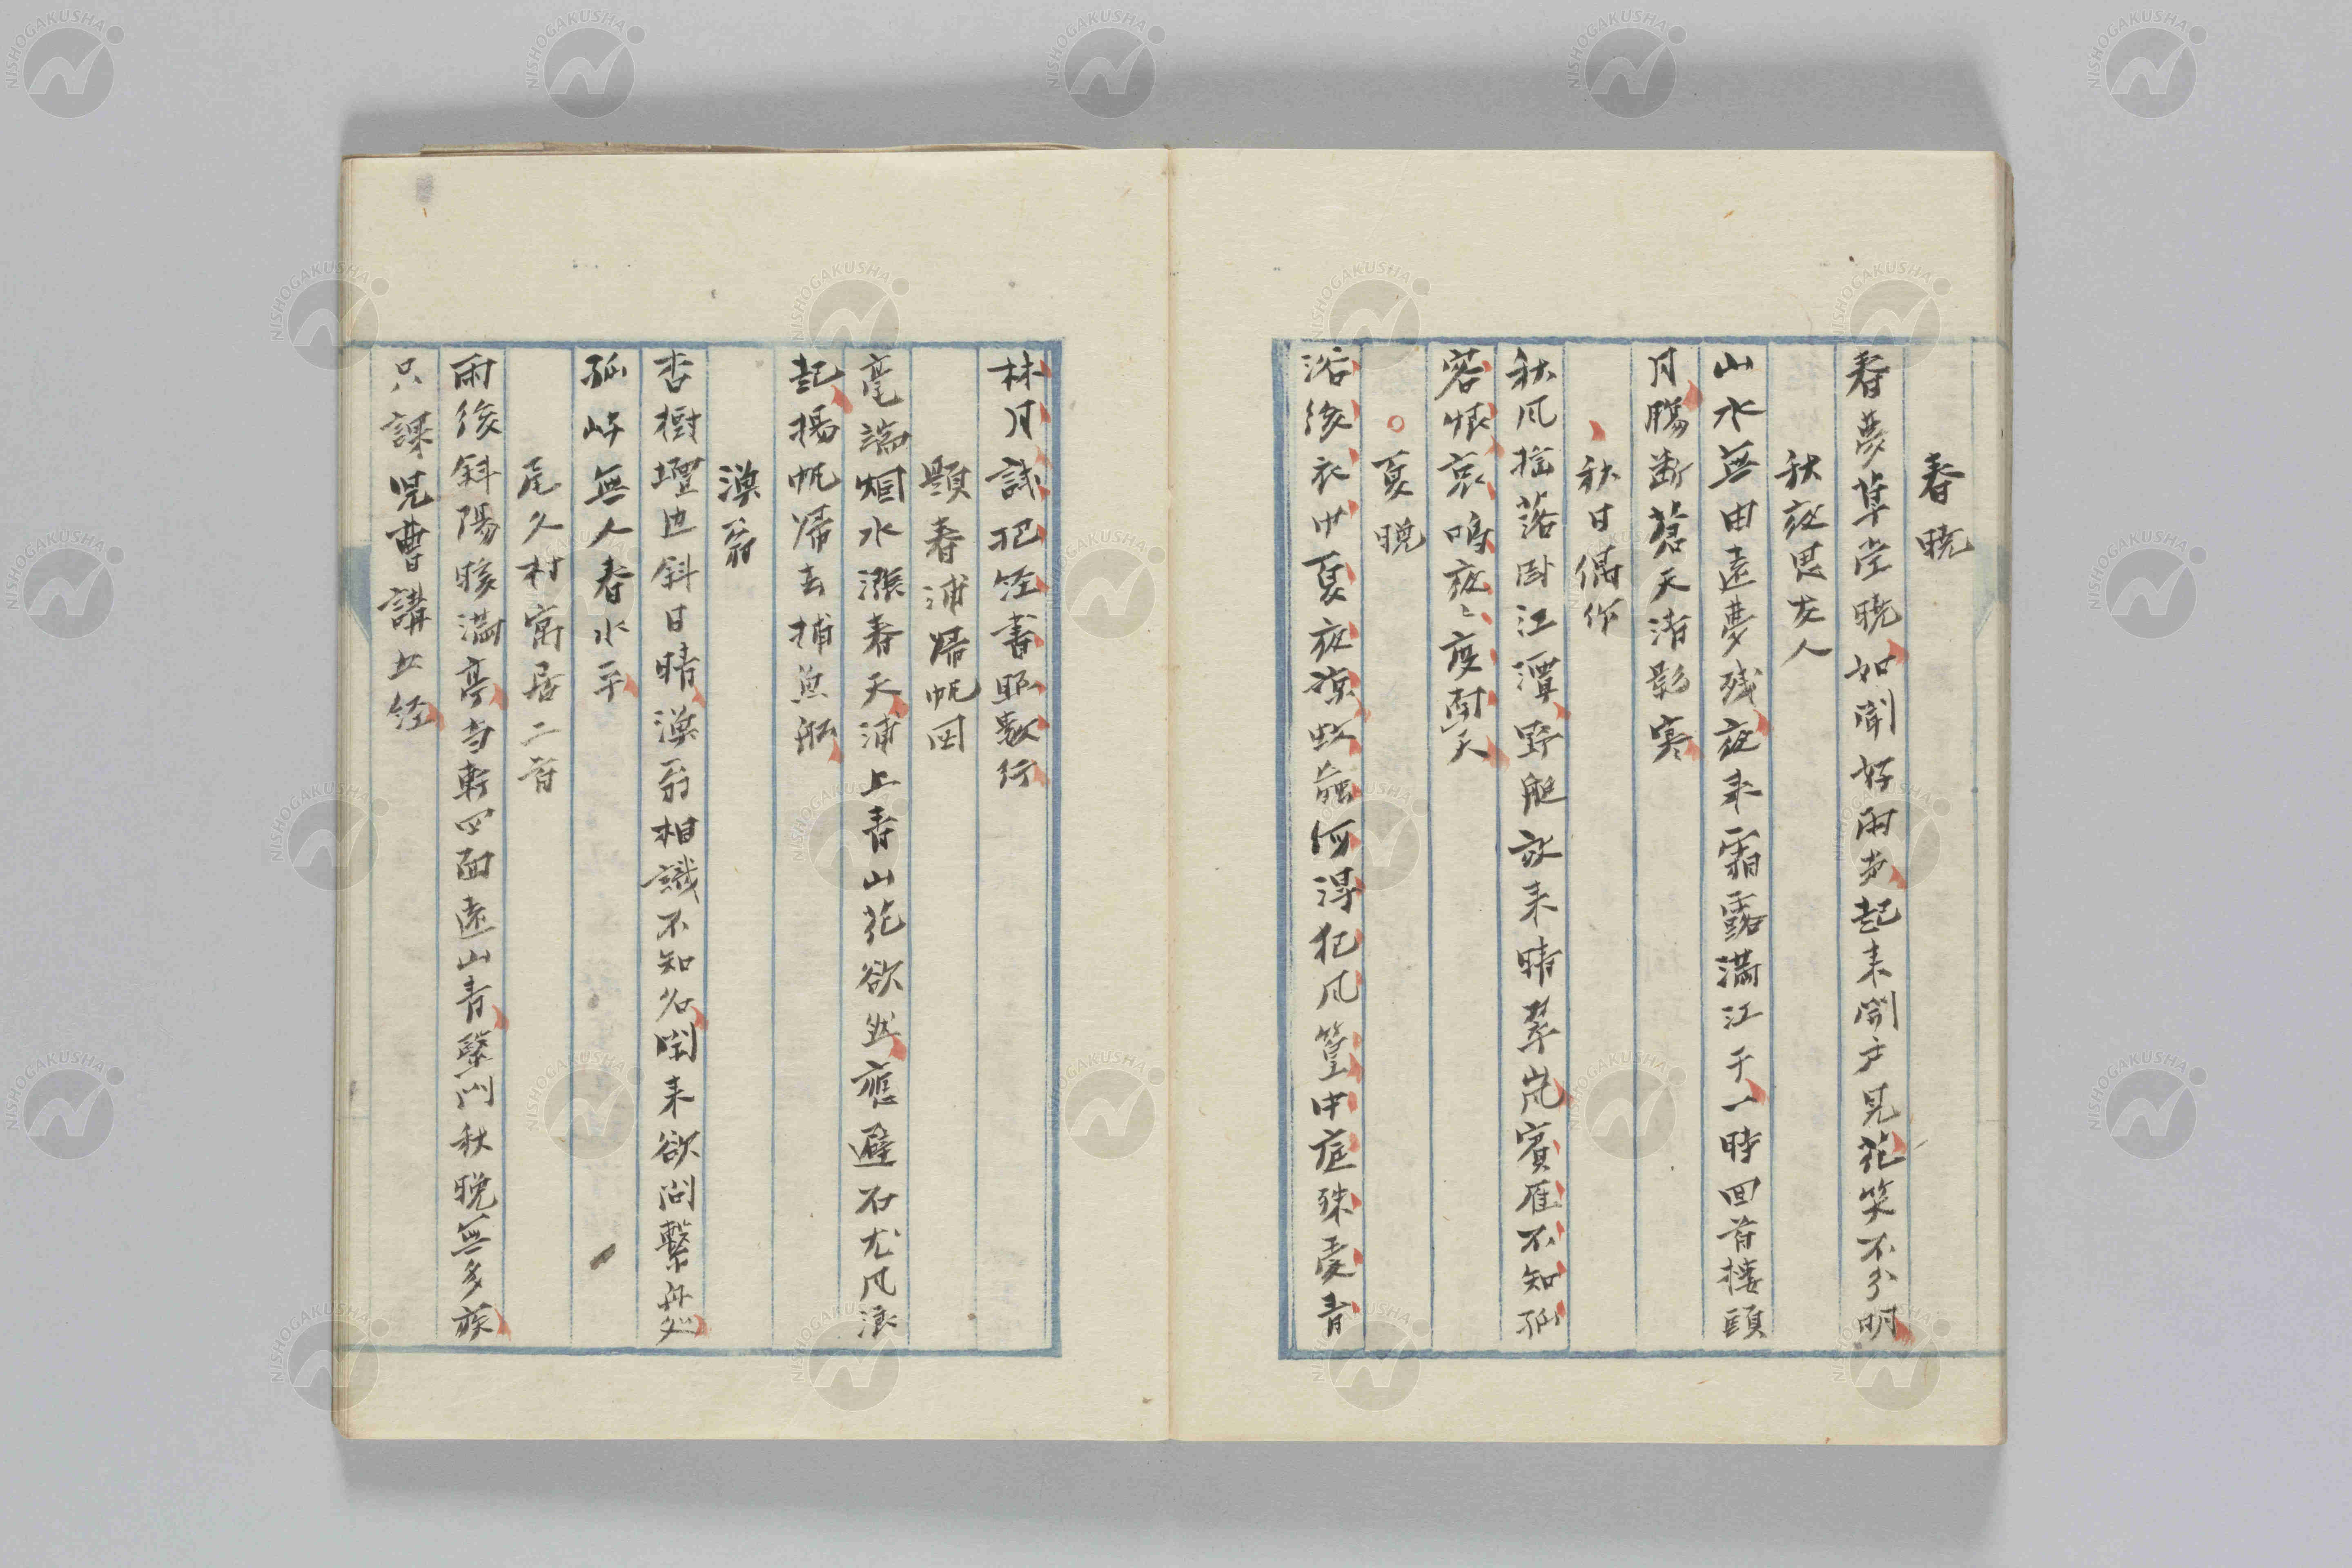 春暁
春夢草堂暁如聞好雨声起来開戸見花笑不分明
秋夜思友人
山水無由遠夢残夜来霜露満江干一時回首楼頭
月腸断蒼天清影寒
秋日偶作
秋风揺落臥江潭野艇放来晴翠嵐賓雁不知孤
客恨哀鳴夜〻度天
夏晩
浴後衣巾夏夜涼蚊蝱何得犯风篁中庭殊愛青
林月試把経書照数行
題春浦帰帆図
毫端烟水漲春天浦上青山花欲然應避石尤风浪
起揚帆帰去捕魚船
漁翁
杏樹壇辺斜日晴漁翁相識不知名閑来欲問繋舟処
孤無人春水平
尾久村寓居二首
雨後斜陽暖満亭当軒四面遠山青門秋晩無多族
只課児曹講五経